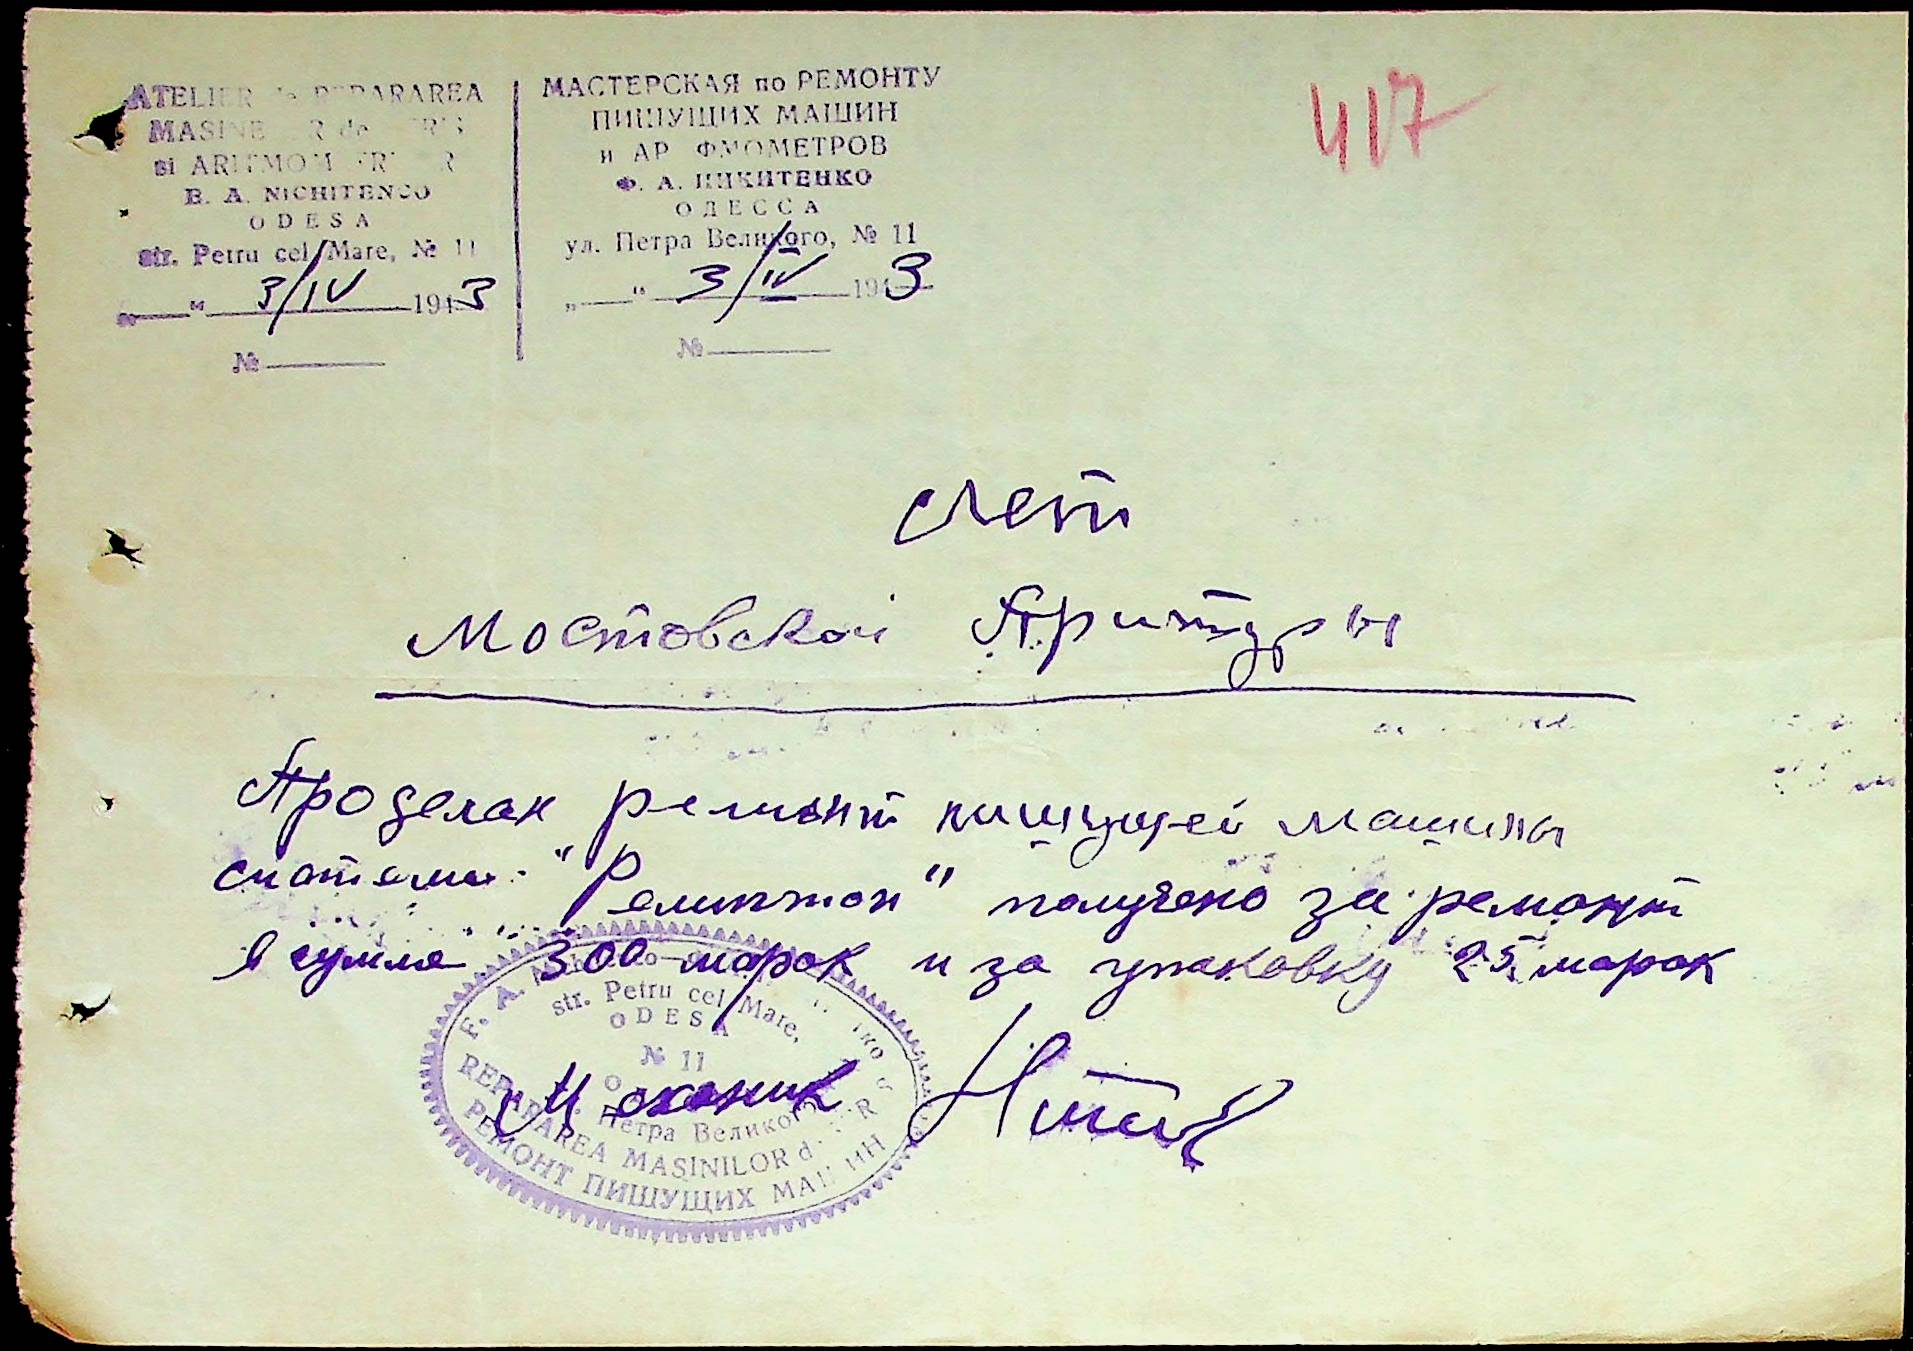 ATELIER de REPARAREA
MASINELOR de SCRIS
si ARITMOMETRELOR
B. A. NICHITENCO
ODESA
str. Petru cel Mare, № 11
„ “ 3/IV 1943
№
МАСТЕРСКАЯ по РЕМОНТУ
ПИШУЩИХ МАШИН
и АРИФМОМЕТРОВ
Ф. А. НИКИТЕНКО
ОДЕССА
ул. Петра Великого, № 11
„ “ 3/IV 1943
№
417
Счет
Мостовской Притуры
Проделан ремонт пишущей машины
системы "Ремингтон" получено за ремонт
в сумме 300 марок и за упаковку 25 марок
Механик
F. A.
str. Petru cel Mare,
ODESA
№ 11
Петра Великого
REPARAREA MASINILOR de SCRIS
РЕМОНТ ПИШУЩИХ МАШИН